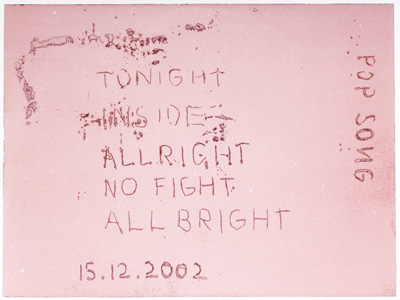 TONIGHT
INSIDE
ALLRIGHT
NO FIGHT
ALL BRIGHT
15.12.2002
POP SONG